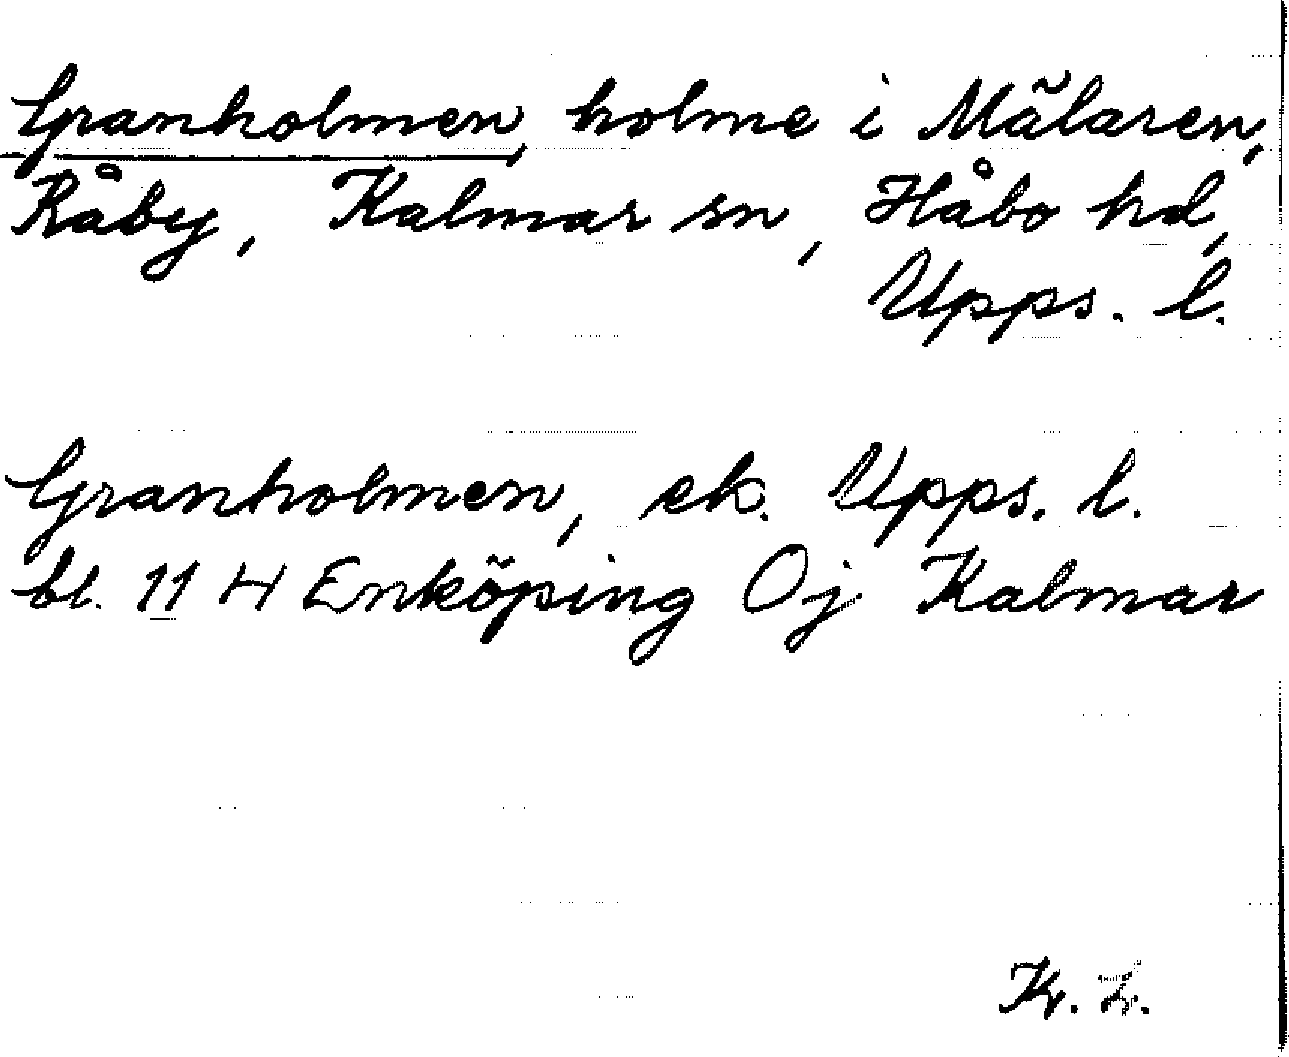 Granholmen, holme i Mälaren,
Råby, Kalmar sn, Håbo hd,
Upps. l.
Granholmen, ek. Upps. l.
bl. 11 H Enköping Oj Kalmar